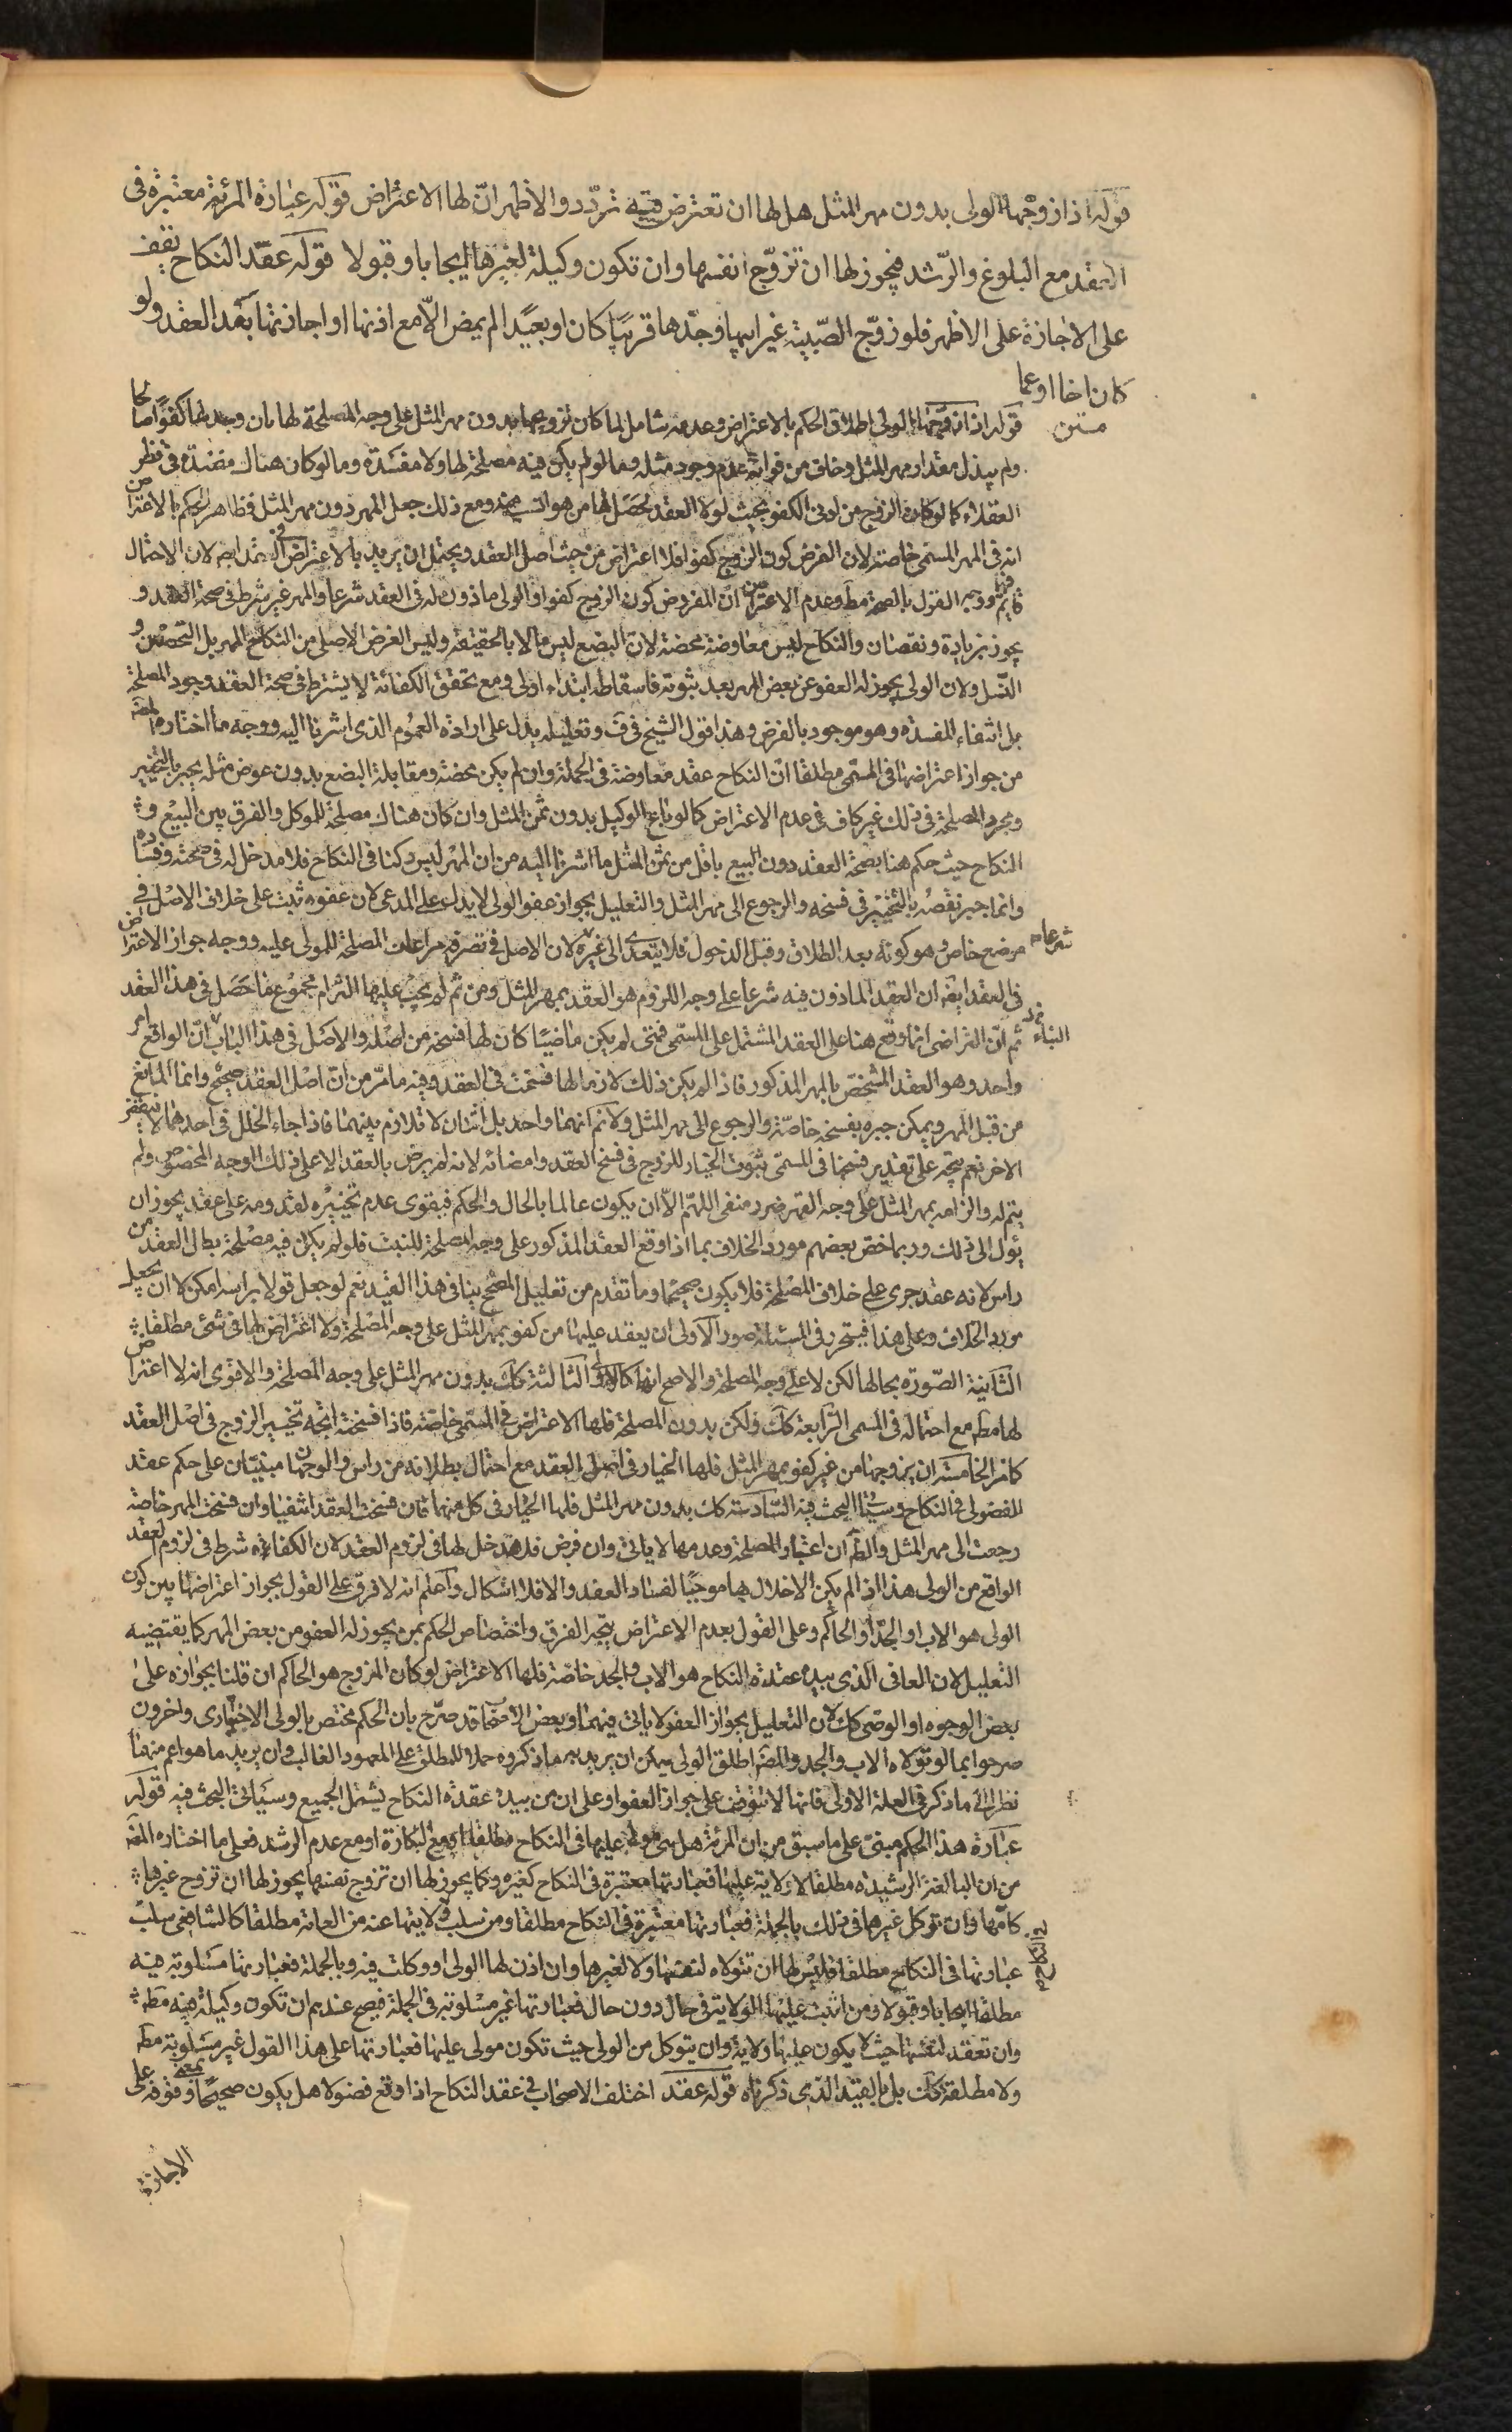 قوله اذا زوجها الولى بدون مهر المثل هل لها ان تعترض فيه تردّد والاظهر انّ لها الاعتراض قوله عبارة المرئة معتبرة فى
العقد مع البلوغ والرّشد فيجوز لها ان تزوّج نفسها وان تكون وكيلة لغيرها ايجابا وقبولا قوله عقد النكاح يقف
على الاجازة على الاظهر فلو زوّج الصّبية غير ابيها وجدّها قريبًا كان او بعيدا لم يمض الّا مع اذنها او اجازتها بعد العقد ولو
كان اخا او عما
متن
قوله اذا زوّجها الولى اطلاق الحكم بالاعتراض وعدمه شامل لما كان تزويجها بدون مهر المثل على وجه المصلحة لها بان وجد لها كفوًا صالحا
ولم يبذل مقدار مهر المثل وخاف من فواته عدم وجود مثله وما لو لم يكن فيه مصلحة لها ولا مفسدة وما لو كان هناك مفسدة فى نظر
العقلاء كما لو كان الزوج من ادنى الكفو بحيث لولا العقد لحصل لها من هو انسب منه ومع ذلك جعل المهر دون مهر المثل فظاهر الحكم بالاعتراض
انه فى المهر المسمى خاصة لان الفرض كون الزوج كفوا فلا اعتراض من حيث اصل العقد ويحتمل ان يريد بالاعتراض فى العقد ايض لان الاحتمال
قايم فيهما ووجه القول بالصحة مط وعدم الاعتراض انّ المفروض كون الزوج كفوا والولى ماذون له فى العقد شرعا والمهر غير شرط فى صحة العقد و
يجوز بزيادة ونقصان والنكاح ليس معاوضة محضة لان البضع ليس مالا بالحقيقة وليس الغرض الاصلى من النكاح المهر بل التحصين و
النّسل ولان الولى يجوز له العفو عن بعض المهر بعد ثبوته فاسقاطه ابتداء اولى ومع تحقق الكفائة لا يشترط فى صحة العقد وجود المصلحة
بل انتفاء المفسده وهو موجود بالفرض وهذا قول الشيخ فى ف وتعليله يدل على ارادة العموم الذى اشرنا اليه ووجه ما اختاره المصَ
من جواز اعتراضها فى المسمى مطلقا انّ النكاح عقد معاوضة فى الجملة وان لم يكن محضة ومقابلة البضع بدون عوض مثله يجبر بالتخيير
ومجرد المصلحة فى ذلك غير كاف فى عدم الاعتراض كما لو باع الوكيل بدون ثمن المثل وان كان هناك مصلحة للموكل والفرق بين البيع و
النكاح حيث حكم هنا بصحة العقد دون البيع باقل من ثمن المثل ما اشرنا اليه من ان المهر ليس ركنا فى النكاح فلا مدخل له فى صحته وفساده
وانما جبر نقصه بالتخيير فى فسخه والرجوع الى مهر المثل والتعليل بجواز عفو الولى لا يدل على المدعى لان عفوه ثبت على خلاف الاصل فى
موضع خاص وهو كونه بعد الطلاق وقبل الدخول فلا يتعدى الى غيره لان الاصل فى تصرفه مراعات المصلحة للمولى عليه ووجه جواز الاعتراض
شرعا م
فى العقد ايض ان العقد الماذون فيه شرعا على وجه اللزوم هو العقد بمهر المثل ومن ثم لم يجب عليها التزام مجموع ما حصل فى هذا العقد
ثم انّ التراضى انما وقع هنا على العقد المشتمل على المسمّى فمتى لم يكن ماضيًا كان لها فسخه من اصله والاصل فى هذا الباب انّ الواقع امر
واحد وهو العقد المشخص بالمهر المذكور فاذا لم يكن ذلك لازما لها فسخت فى العقد وفيه ما مرّ من انّ اصل العقد صحيح وانما المانع
من قبل المهر ويمكن جبره بفسخه خاصّة والرجوع الى مهر المثل ولا نم انهما واحد بل اثنان لا تلازم بينهما فاذا جاء الخلل فى احدهما لا يفسخ
الاخر نعم يتجه على تقدير فسخها فى المسمّى ثبوت الخيار للزوج فى فسخ العقد وامضائه لانه لم يرض بالعقد الا على ذلك الوجه المخصوص ولم
يتم له والزامه بمهر المثل على وجه القهر ضرر منفى اللهمّ الّا ان يكون عالما بالحال والحكم فيقوى عدم تخييره لقدومه على عقد يجوز ان
يئول الى ذلك وربما خص بعضهم مورد الخلاف بما اذا وقع العقد المذكور على وجه المصلحة للبنت فلو لم يكن فيه مصلحة بطل العقد من
راس لانه عقد جرى على خلاف المصلحة فلا يكون صحيحا وما تقدم من تعليل المصحح ينافى هذا القيد نعم لو جعل قولا براسه امكن لا ان يجعل
مورد الخلاف وعلى هذا فيتحرر فى المسئلة صور الاولى ان يعقد عليها من كفو بمهر المثل على وجه المصلحة ولا اعتراض لها فى شئ مطلقا
الثانية الصّورة بحالها لكن لا على وجه المصلحة والاصح انها كالاولى الثالثة كك بدون مهر المثل على وجه المصلحة والاقوى انه لا اعتراض
لها مط مع احتماله فى المسمى الرّابعة كك ولكن بدون المصلحة فلها الاعتراض فى المسمى خاصّة فاذا فسخته اتجه تخيير الزوج فى اصل العقد
كما مر الخامسة ان يزوجها من غير كفو بمهر المثل فلها الخيار فى اصل العقد مع احتمال بطلانه من راس والوجهان مبنيّان على حكم عقد
الفضولى فى النكاح وسيئ البحث فيه السّادسة كك بدون مهر المثل فلها الخيار فى كل منهما فان فسخت العقد انتفيا وان فسخت المهر خاصّة
رجعت الى مهر المثل والظَ ان اعتبار المصلحة وعدمها لا ياتى وان فرض فلا مدخل لها فى لزوم العقد لان الكفاءة شرط فى لزوم العقد
الواقع من الولى هذا اذا لم يكن الاخلال بها موجبًا لفساد العقد والا فلا اشكال واعلم انه لا فرق على القول بجواز اعتراضها بين كون
الولى هو الاب او الجدّ او الحاكم وعلى القول بعدم الاعتراض يتجه الفرق واختصاص الحكم بمن يجوز له العفو من بعض المهر كما يقتضيه
التعليل لان العافى الذى بيده عقدة النكاح هو الاب والجد خاصّة فلها الاعتراض لو كان المزوج هو الحاكم ان قلنا بجوازه على
بعض الوجوه او الوصى كك لان التعليل بجواز العفو لا ياتى فيهما وبعض الاصحاب قد صرّح بان الحكم مختص بالولى الاجبارى واخرون
صرحوا بما لو تولاه الاب والجد والمصَ اطلق الولى يمكن ان يريد به ما ذكروه حملا للمطلق على المعهود الغالب وان يريد ما هو اعم منهما
نظرا الى ما ذكر فى العلة الاولى فانها لا تتوقف على جواز العفو او على ان من بيده عقدة النكاح يشتمل الجميع وسياتى البحث فيه قوله
عبارة هذا الحكم مبنى على ما سبق من ان المرئة هل هى مولى عليها فى النكاح مطلقا او مع البكارة او مع عدم الرشد فعلى ما اختاره المصَ
من ان البالغة الرشيدة مطلقا لا ولاية عليها فعبارتها معتبرة فى النكاح كغيره وكما يجوز لها ان تزوج نفسها يجوز لها ان تزوج غيرها
كامّها وان توكل غيرها فى ذلك بالجملة فعبارتها معتبرة فى النكاح مطلقا ومن سلب ولايتها عنه من العامة مطلقا كالشافعى سلب
عبارتها فى النكاح مطلقا فليس لها ان تتولاه لنفسها ولا لغيرها وان اذن لها الولى او وكلت فيه وبالجملة فعبارتها مسلوبة فيه
مطلقا ايجابا وقبولا ومن اثبت عليها الولاية فى حال دون حال فعبارتها غير مسلوبة فى الجملة فيصح عندهم ان تكون وكيلة فيه مط
وان تعقد لنفسها حيث لا يكون عليها ولاية وان يتوكل من الولى حيث تكون مولى عليها فعبارتها على هذا القول غير مسلوبة مط
ولا مطلقة كك بل بالقيد الذى ذكرناه قوله عقد اختلف الاصحاب فى عقد النكاح اذا وقع فضولا هل يكون صحيحًا بمعنى وقوفه على
الاجازة